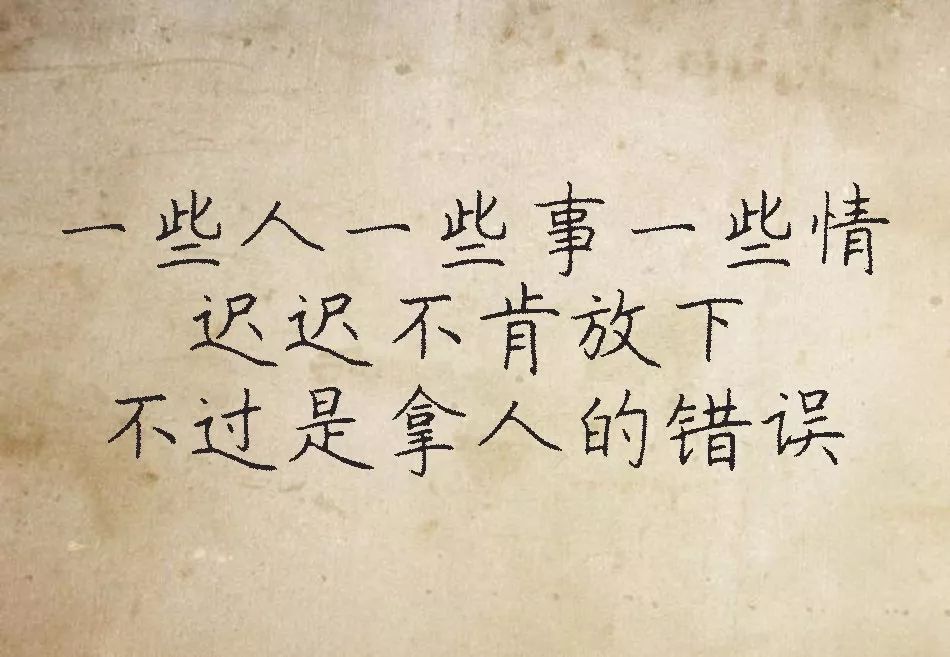 一些人一些事一些情
迟迟不肯放下
不过是拿人的错误